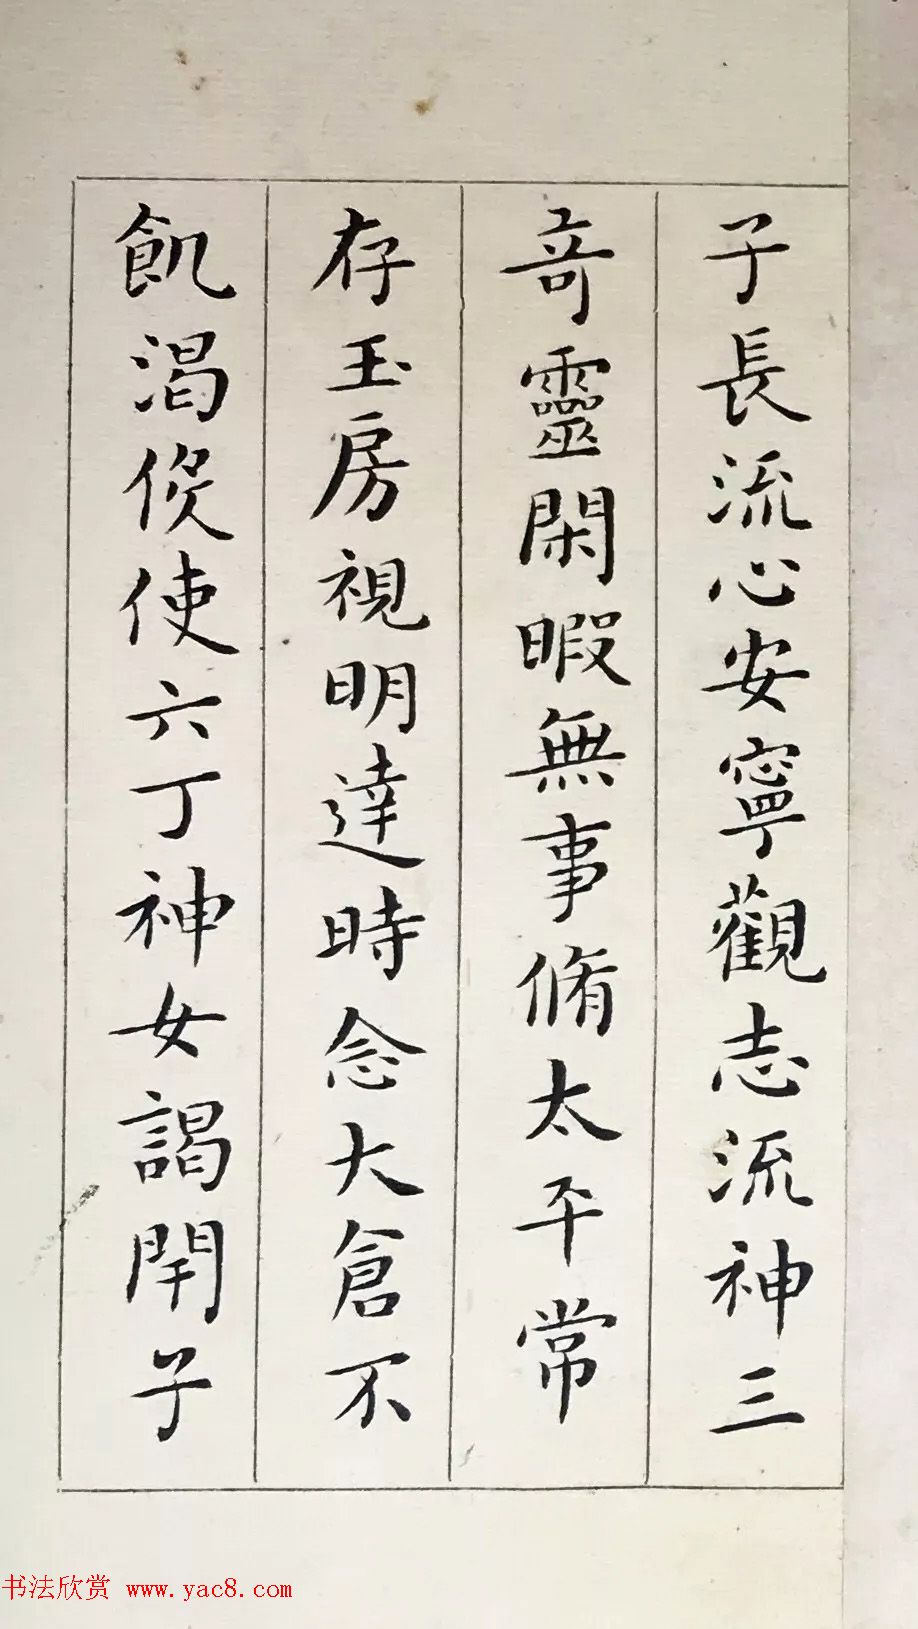 子長流心安寧觀志流神三
竒靈閑暇無事脩太平常
存玉房視明達時念大倉不
飢渴役使六丁神女謁閇子
书法欣赏 www.yac8.com